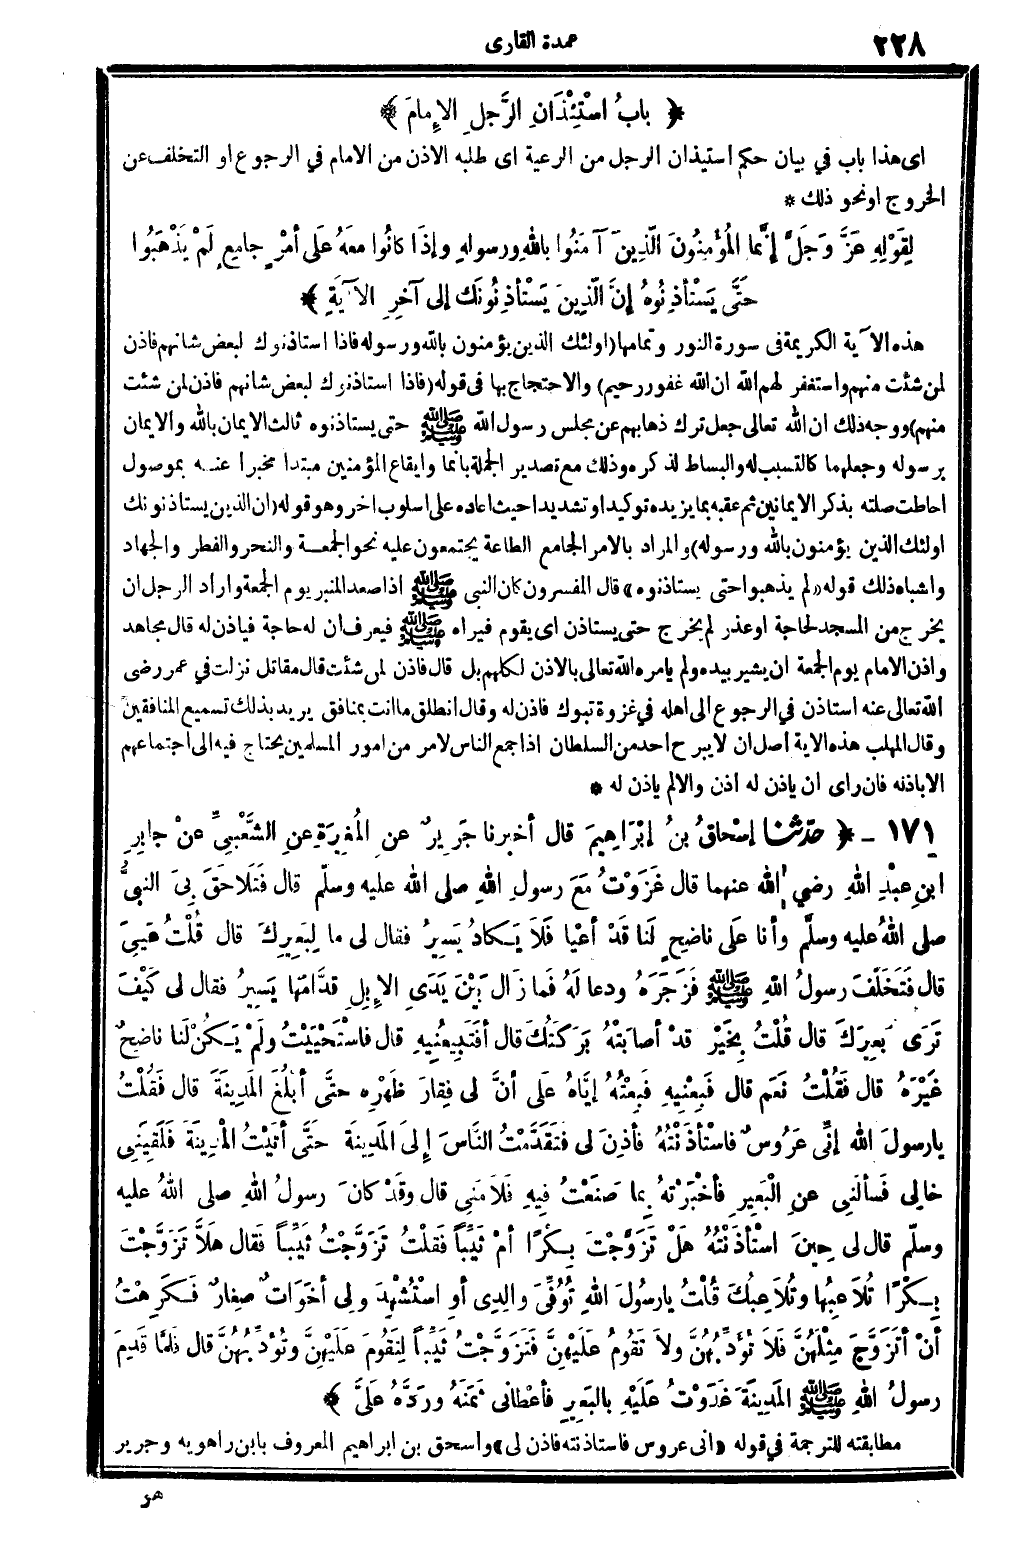 ٢٢٨
عمدة القارى
﴿ بابُ اسْتِئْذَانِ الرَّجلِ الإِمامَ ﴾
اى هذا باب في بيان حكم استيذان الرجل من الرعية اى طلبه الاذن من الامام في الرجوع او التخلف عن
الخروج او نحو ذلك *
لِقَوْلِهِ عَزَّ وَجَلَّ إِنَّما المُؤْمِنُونَ الَّذِينَ آمَنُوا باللهِ ورسولهِ وإذَا كانُوا معهُ عَلَى أمْرٍ جامِعٍ لَمْ يَذْهَبُوا
حَتَّى يَسْتأذِنُوهُ إنَّ الَّذِينَ يَسْتأذِنُونَكَ إلى آخرِ الآيَةِ ﴾
هذه الآية الكريمة فى سورة النور وتمامها (اولئك الذين يؤمنون بالله ورسوله فاذا استاذنوك لبعض شانهم فاذن
لمن شئت منهم واستغفر لهم الله ان الله غفور رحيم) والاحتجاج بها فى قوله (فاذا استاذنوك لبعض شانهم فاذن لمن شئت
منهم) ووجه ذلك ان الله تعالى جعل ترك ذهابهم عن مجلس رسول الله ﷺ حتى يستاذنوه ثالث الايمان بالله والايمان
برسوله وجعلهما كالتسبب له والبساط لذكره وذلك مع تصدير الجملة بانما وايقاع المؤمنين مبتدا مخبرا عنه بموصول
احاطت صلته بذكر الايمانين ثم عقبه بما يزيده توكيدا وتشديدا حيث اعاده على اسلوب اخر وهو قوله (ان الذين يستاذنونك
اولئك الذين يؤمنون بالله ورسوله) والمراد بالامر الجامع الطاعة يجتمعون عليه نحو الجمعة والنحر والفطر والجهاد
واشباه ذلك قوله «لم يذهبوا حتى يستاذنوه» قال المفسرون كان النبى ﷺ اذا صعد المنبر يوم الجمعة واراد الرجل ان
يخرج من المسجد لحاجة او عذر لم يخرج حتى يستاذن اى يقوم فيراه ﷺ فيعرف ان له حاجة فياذن له قال مجاهد
واذن الامام يوم الجمعة ان يشير بيده ولم يامره الله تعالى بالاذن لكلهم بل قال فاذن لمن شئت قال مقاتل نزلت في عمر رضى
الله تعالى عنه استاذن في الرجوع الى اهله في غزوة تبوك فاذن له وقال انطلق ما انت بمنافق يريد بذلك تسميع المنافقين
وقال المهلب هذه الاية أصل ان لا يبرح احد من السلطان اذا جمع الناس لامر من امور المسلمين يحتاج فيه الى اجتماعهم
الا باذنه فان راى ان ياذن له اذن والا لم ياذن له *
١٧١ - ﴿ حدّثنا إسْحاقُ بنُ إبْرَاهِيمَ قال أخبرنا جَرِيرٌ عنِ المُغِيرَةِ عنِ الشَّعْبِيِّ عنْ جابِرِ
ابنِ عبْدِ اللهِ رضي الله عنهما قال غَزَوْتُ مَعَ رسولِ اللهِ صلى الله عليه وسلّم قال فَتَلاحَقَ بِيَ النبيُّ
صلى اللهُ عليه وسلَّم وأنا عَلَى ناضِحٍ لَنا قدْ أعْيا فَلاَ يَكادُ يَسِيرُ فقال لى ما لِبَعِيرِكَ قال قُلْتُ عَيِيَ
قال فَتَخَلَّفَ رسولُ اللهِ ﷺ فَزَجَرَهُ ودعا لَهُ فَما زَالَ بَيْنَ يَدَىِ الإِبِلِ قدَّامَها يَسيرُ فقال لى كَيْفَ
تَرَى بَعِيرَكَ قال قُلْتُ بِخَيْرٍ قدْ أصابَتْهُ بَرَكَتُكَ قال أفَتَبِيعُنِيهِ قال فاستَحْيَيْتُ ولَمْ يَكُنْ لَنا ناضِحٌ
غَيْرَهُ قال فَقُلْتُ نَعَم قال فَبِعْنِيهِ فَبِعْتُهُ إيَّاهُ عَلَى أنَّ لى فِقارَ ظَهْرِهِ حتَّى أبْلُغَ المَدِينَةَ قال فَقُلْتُ
يارسولَ الله إنِّى عَرُوسٌ فاسْتأذَنْتُهُ فأذِنَ لى فتَقَدَّمْتُ النَّاسَ إلى المَدِينَةِ حَتَّى أتَيْتُ المْدِينَةَ فَلَقِيَنِى
خالِى فَسألَنِى عنِ الْبَعِيرِ فأخْبَرْتهُ بِما صَنَعْتُ فِيهِ فَلاَمَنِى قال وقَدْ كانَ رسولُ اللهِ صلى اللهُ عليه
وسلّم قال لى حِينَ اسْتأذَنْتُهُ هَلْ تَزَوَّجْتَ بِكْرًا أمْ ثَيِّباً فَقلْتُ تَزَوَّجْتُ ثَيِّباً فَقال هَلاَّ تَزَوَّجْتَ
بِكْرًا تُلاَعِبُها وتُلاَعِبُكَ قُلْتُ يارسُولَ اللهِ تُوُفِّىَ والِدِى أوِ اسْتُشْهِدَ ولِى أخَوَاتٌ صِغارٌ فَكَرِهْتُ
أنْ أتَزَوَّجَ مِثْلَهُنَّ فَلاَ تُؤَدِّبُهُنَّ ولاَ تَقُومُ عَلَيْهِنَّ فَتَزَوَّجْتُ ثَيِّباً لِتَقُومَ عَلَيْهِنَّ وتُؤَدِّبُهُنَّ قال فَلَمَّا قَدِمَ
رسولُ اللهِ ﷺ المَدِينَةَ غَدَوْتُ عَلَيْهِ بالبَعِيرِ فأعْطانى ثَمَنَهُ ورَدَّهُ عَلَىَّ ﴾
مطابقته للترجمة في قوله «انى عروس فاستاذنته فاذن لى» واسحق بن ابراهيم المعروف بابن راهويه وجرير
هو